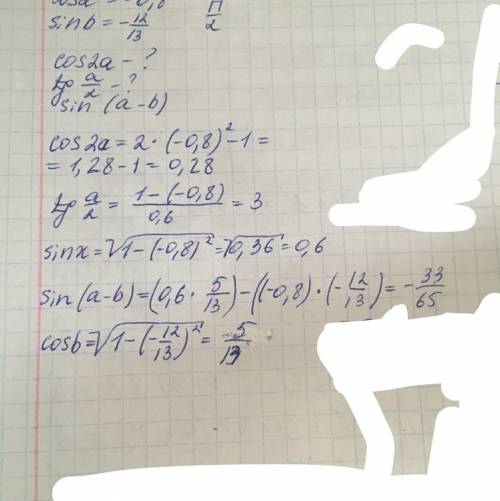 cosa = -0,8
sinb = -12/13 П/2
cos2a - ?
tg a/2 - ?
sin (a-b)
cos2a = 2 · (-0,8)² - 1 =
= 1,28 - 1 = 0,28
tg a/2 = (1-(-0,8))/0,6 = 3
sinx = √(1-(-0,8)²) = √0,36 = 0,6
sin(a-b) = (0,6 · 5/13) - ((-0,8) · (-12/13) = -33/65
cosb = √(1-(-12/13)²) = 5/13